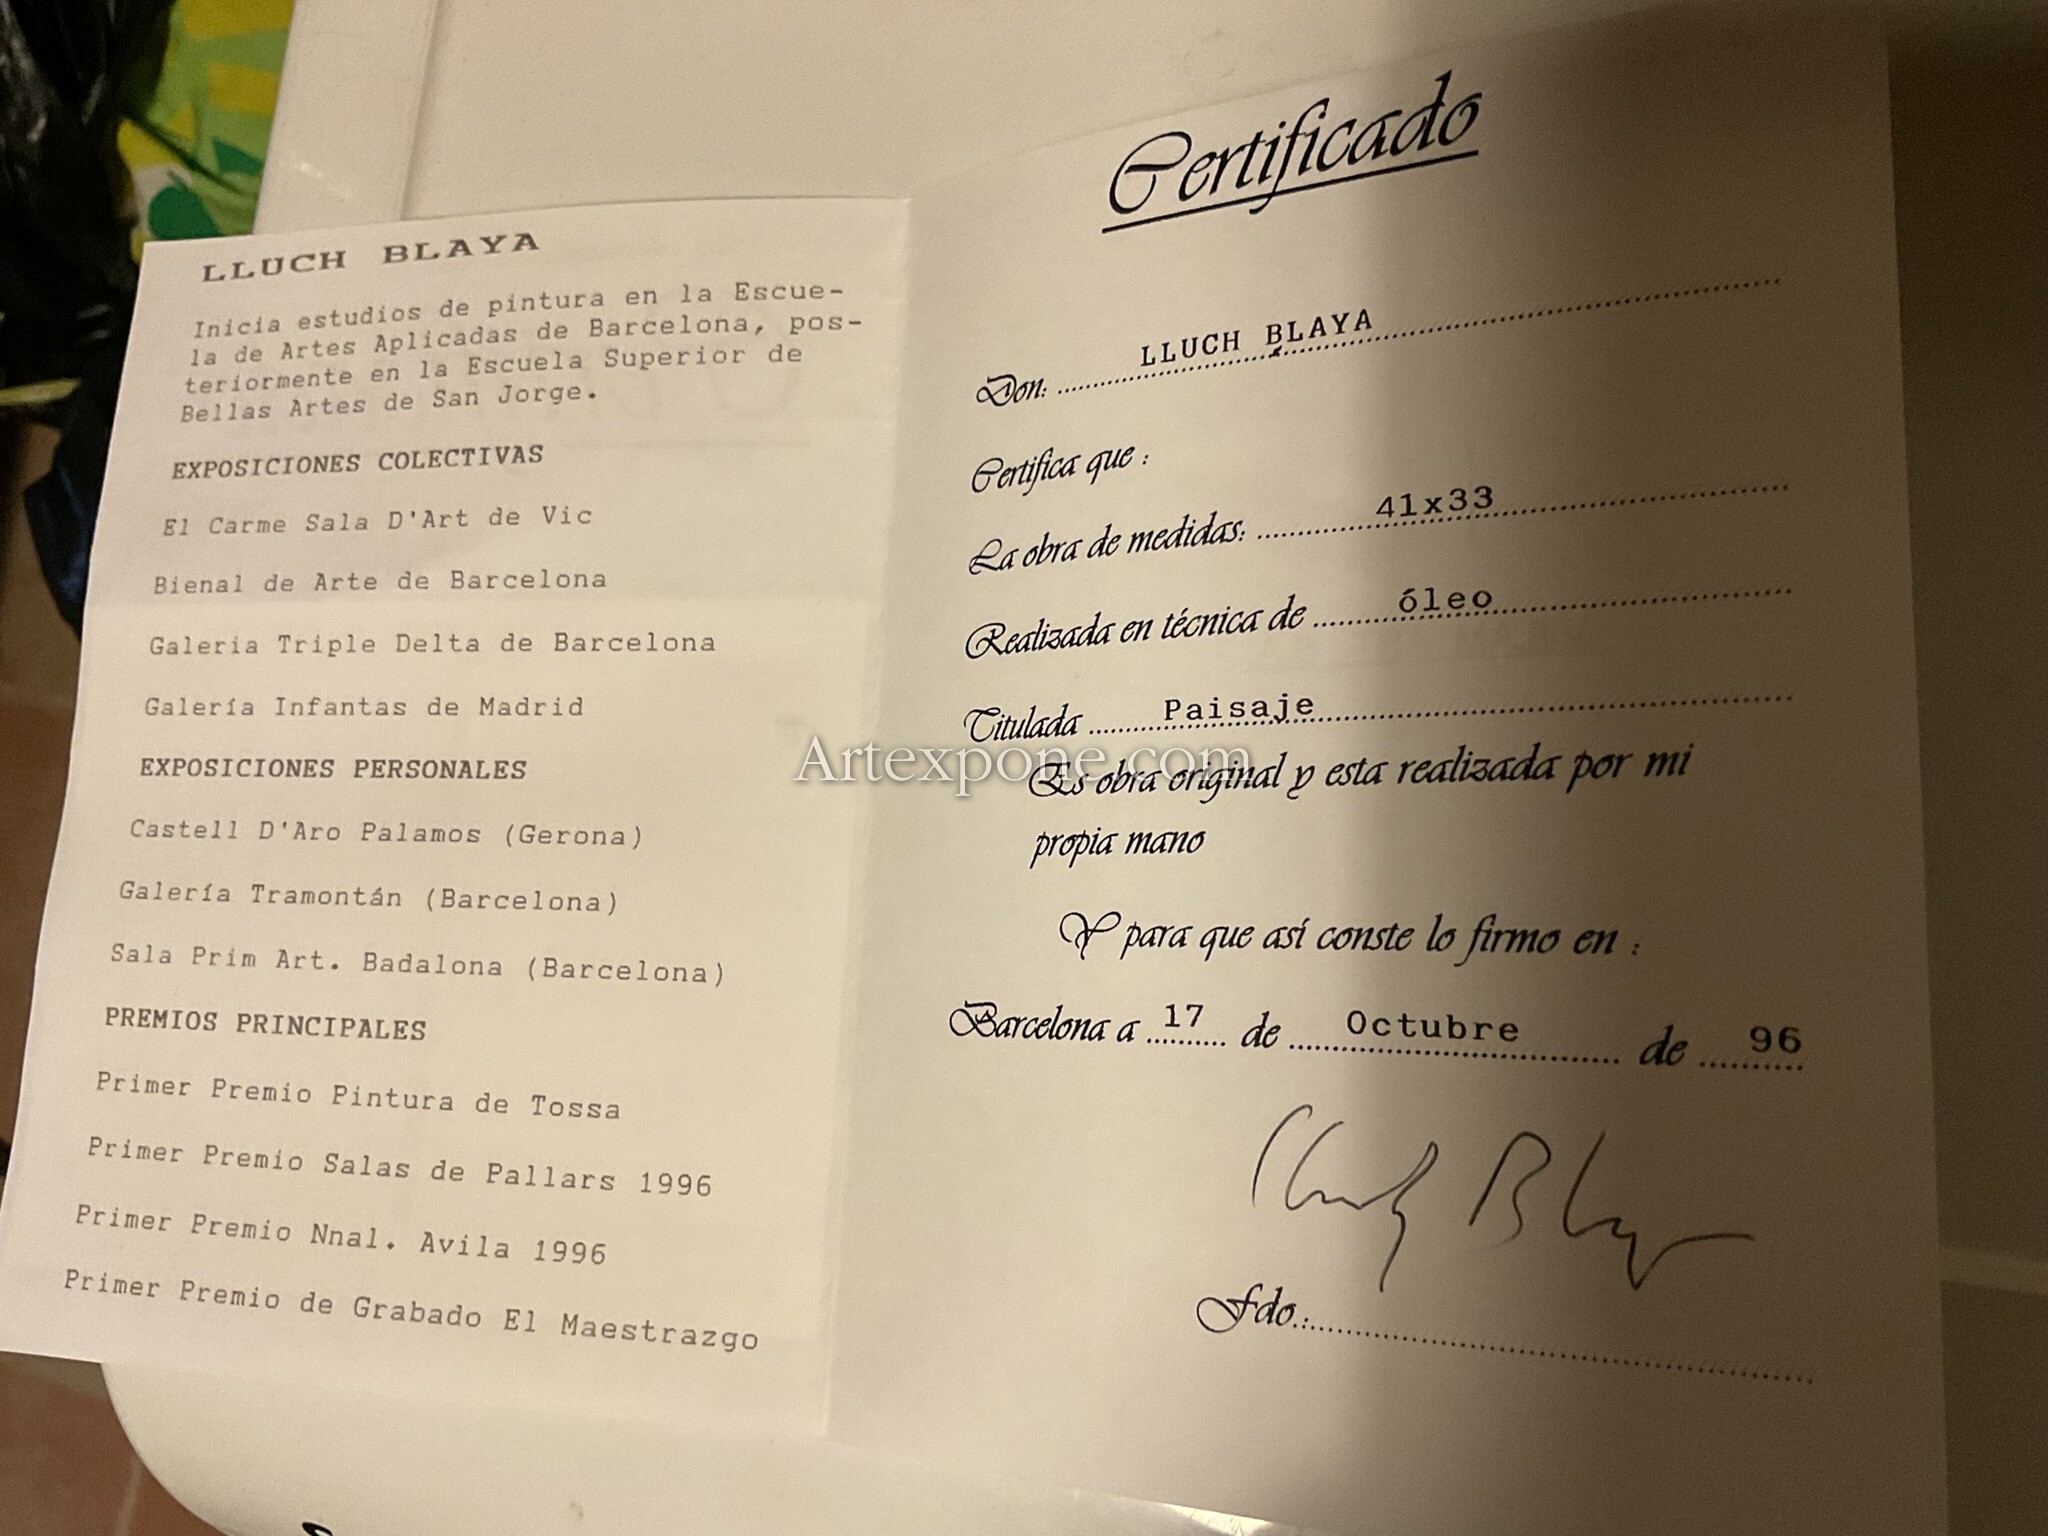 LLUCH BLAYA
Inicia estudios de pintura en la Escue-
la de Artes Aplicadas de Barcelona, pos-
teriormente en la Escuela Superior de
Bellas Artes de San Jorge.
EXPOSICIONES COLECTIVAS
El Carme Sala D'Art de Vic
Bienal de Arte de Barcelona
Galeria Triple Delta de Barcelona
Galería Infantas de Madrid
EXPOSICIONES PERSONALES
Castell D'Aro Palamos (Gerona)
Galería Tramontán (Barcelona)
Sala Prim Art. Badalona (Barcelona)
PREMIOS PRINCIPALES
Primer Premio Pintura de Tossa
Primer Premio Salas de Pallars 1996
Primer Premio Nnal. Avila 1996
Primer Premio de Grabado El Maestrazgo
Certificado
Don: LLUCH BLAYA
Certifica que :
La obra de medidas: 41x33
Realizada en técnica de óleo
Titulada Paisaje
Es obra original y esta realizada por mi
propia mano
Y para que así conste lo firmo en :
Barcelona a 17 de Octubre de 96
Lluch Blaya
Fdo.:
Artexpone.com